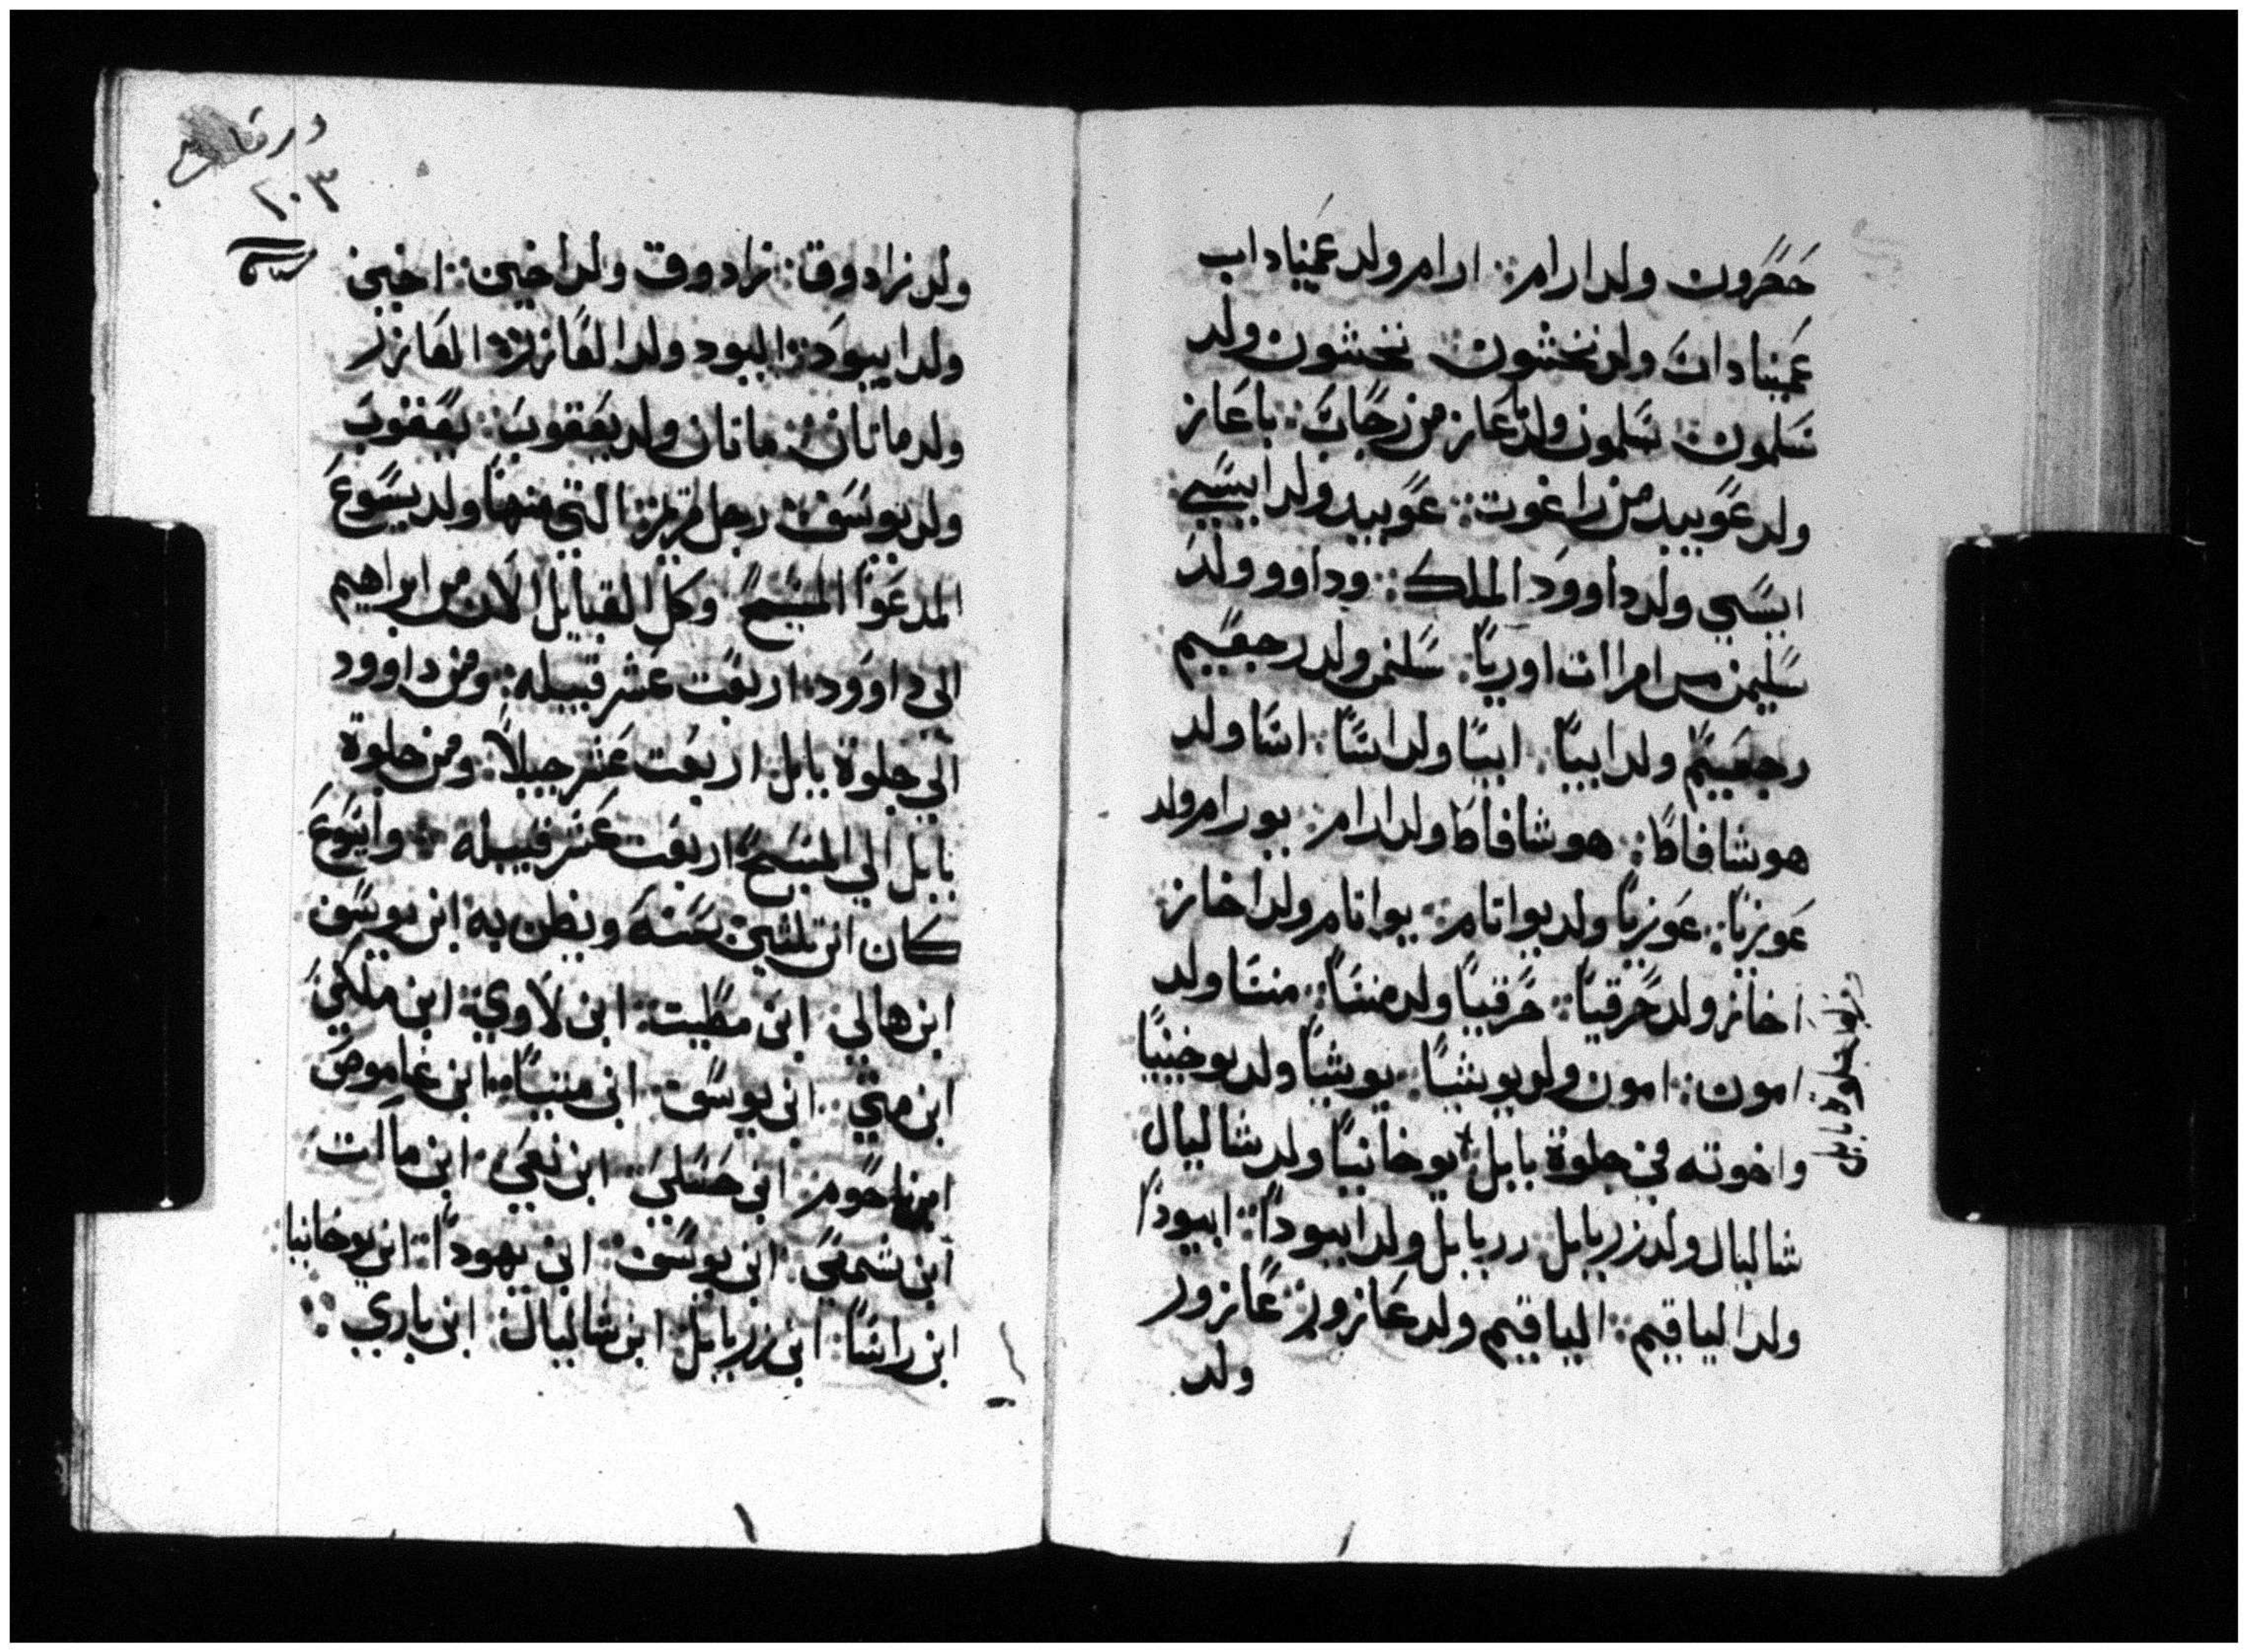 حَصَرُون ولد ارام: ارام ولد عَمَيناداب
عَمَيناداب ولد نخشون: نخشون ولد
سَلمون: سَلمون ولد باعاز من رَحَاب: باعَاز
ولد عَوبيد من راعوت: عَوبيد ولد ايسَي
ايسَي ولد داوود الملك: وداوو ولد
سَليمن من امراات اوريا: سَليمن ولد رجعَيم
رجعَيم ولد ابيا: ابيا ولد اسَا: اسَا ولد
هوشافاط: هوشافاط ولد ارام: يورام ولد
عَوزيا: عَوزيا ولد يواتام: يواتام ولد اخاز
اخاز ولد حَزقيا: حَزقيا ولد منسَا: منسَا ولد
امون: امون ولد يوشيا: يوشيا ولد يوخينيا
واخوته في جلوة بابل: يوخانيا ولد شاليال
شاليال ولد زربابل: زربابل ولد ابيودا: ابيودا
ولد الياقيم: الياقيم ولد عَازور: عَازور
ولد
جلوة بابل
٢٠٣
ولد زادوق: زادوق ولد اخين: اخين
ولد اييود: اليود ولد العَازر: العَازر
ولد ماتان: ماتان ولد يعَقوب: يعَقوب
ولد يوسَف: رجل مريم: التي منها ولد يسَوعَ
المدعَوا المسَيح: وكل القبايل الان من ابراهيم
الي داوود: اربعَت عَشر قبيله: ومن داوود
الي جلوة بابل: اربعَت عَشر جيلا: ومن جلوة
بابل الي المسَيح: اربعَت عَشر قبيله: وايسَوعَ
كان ابن تلتين سَنه ويظن به ابن يوسَف
ابن هالي: ابن مطيت: ابن لاوي: ابن ملكي
ابن متي: ابن يوسَف: ابن متيا: ابن عَاموص
ابن ناحَوم: ابن حَسَلي: ابن نعَي: ابن ماات
ابن شمعَي: ابن يوسَف: ابن يهودا: ابن يوخانيا
ابن راسَا: ابن زربابل: ابن شاليال: ابن ياري: